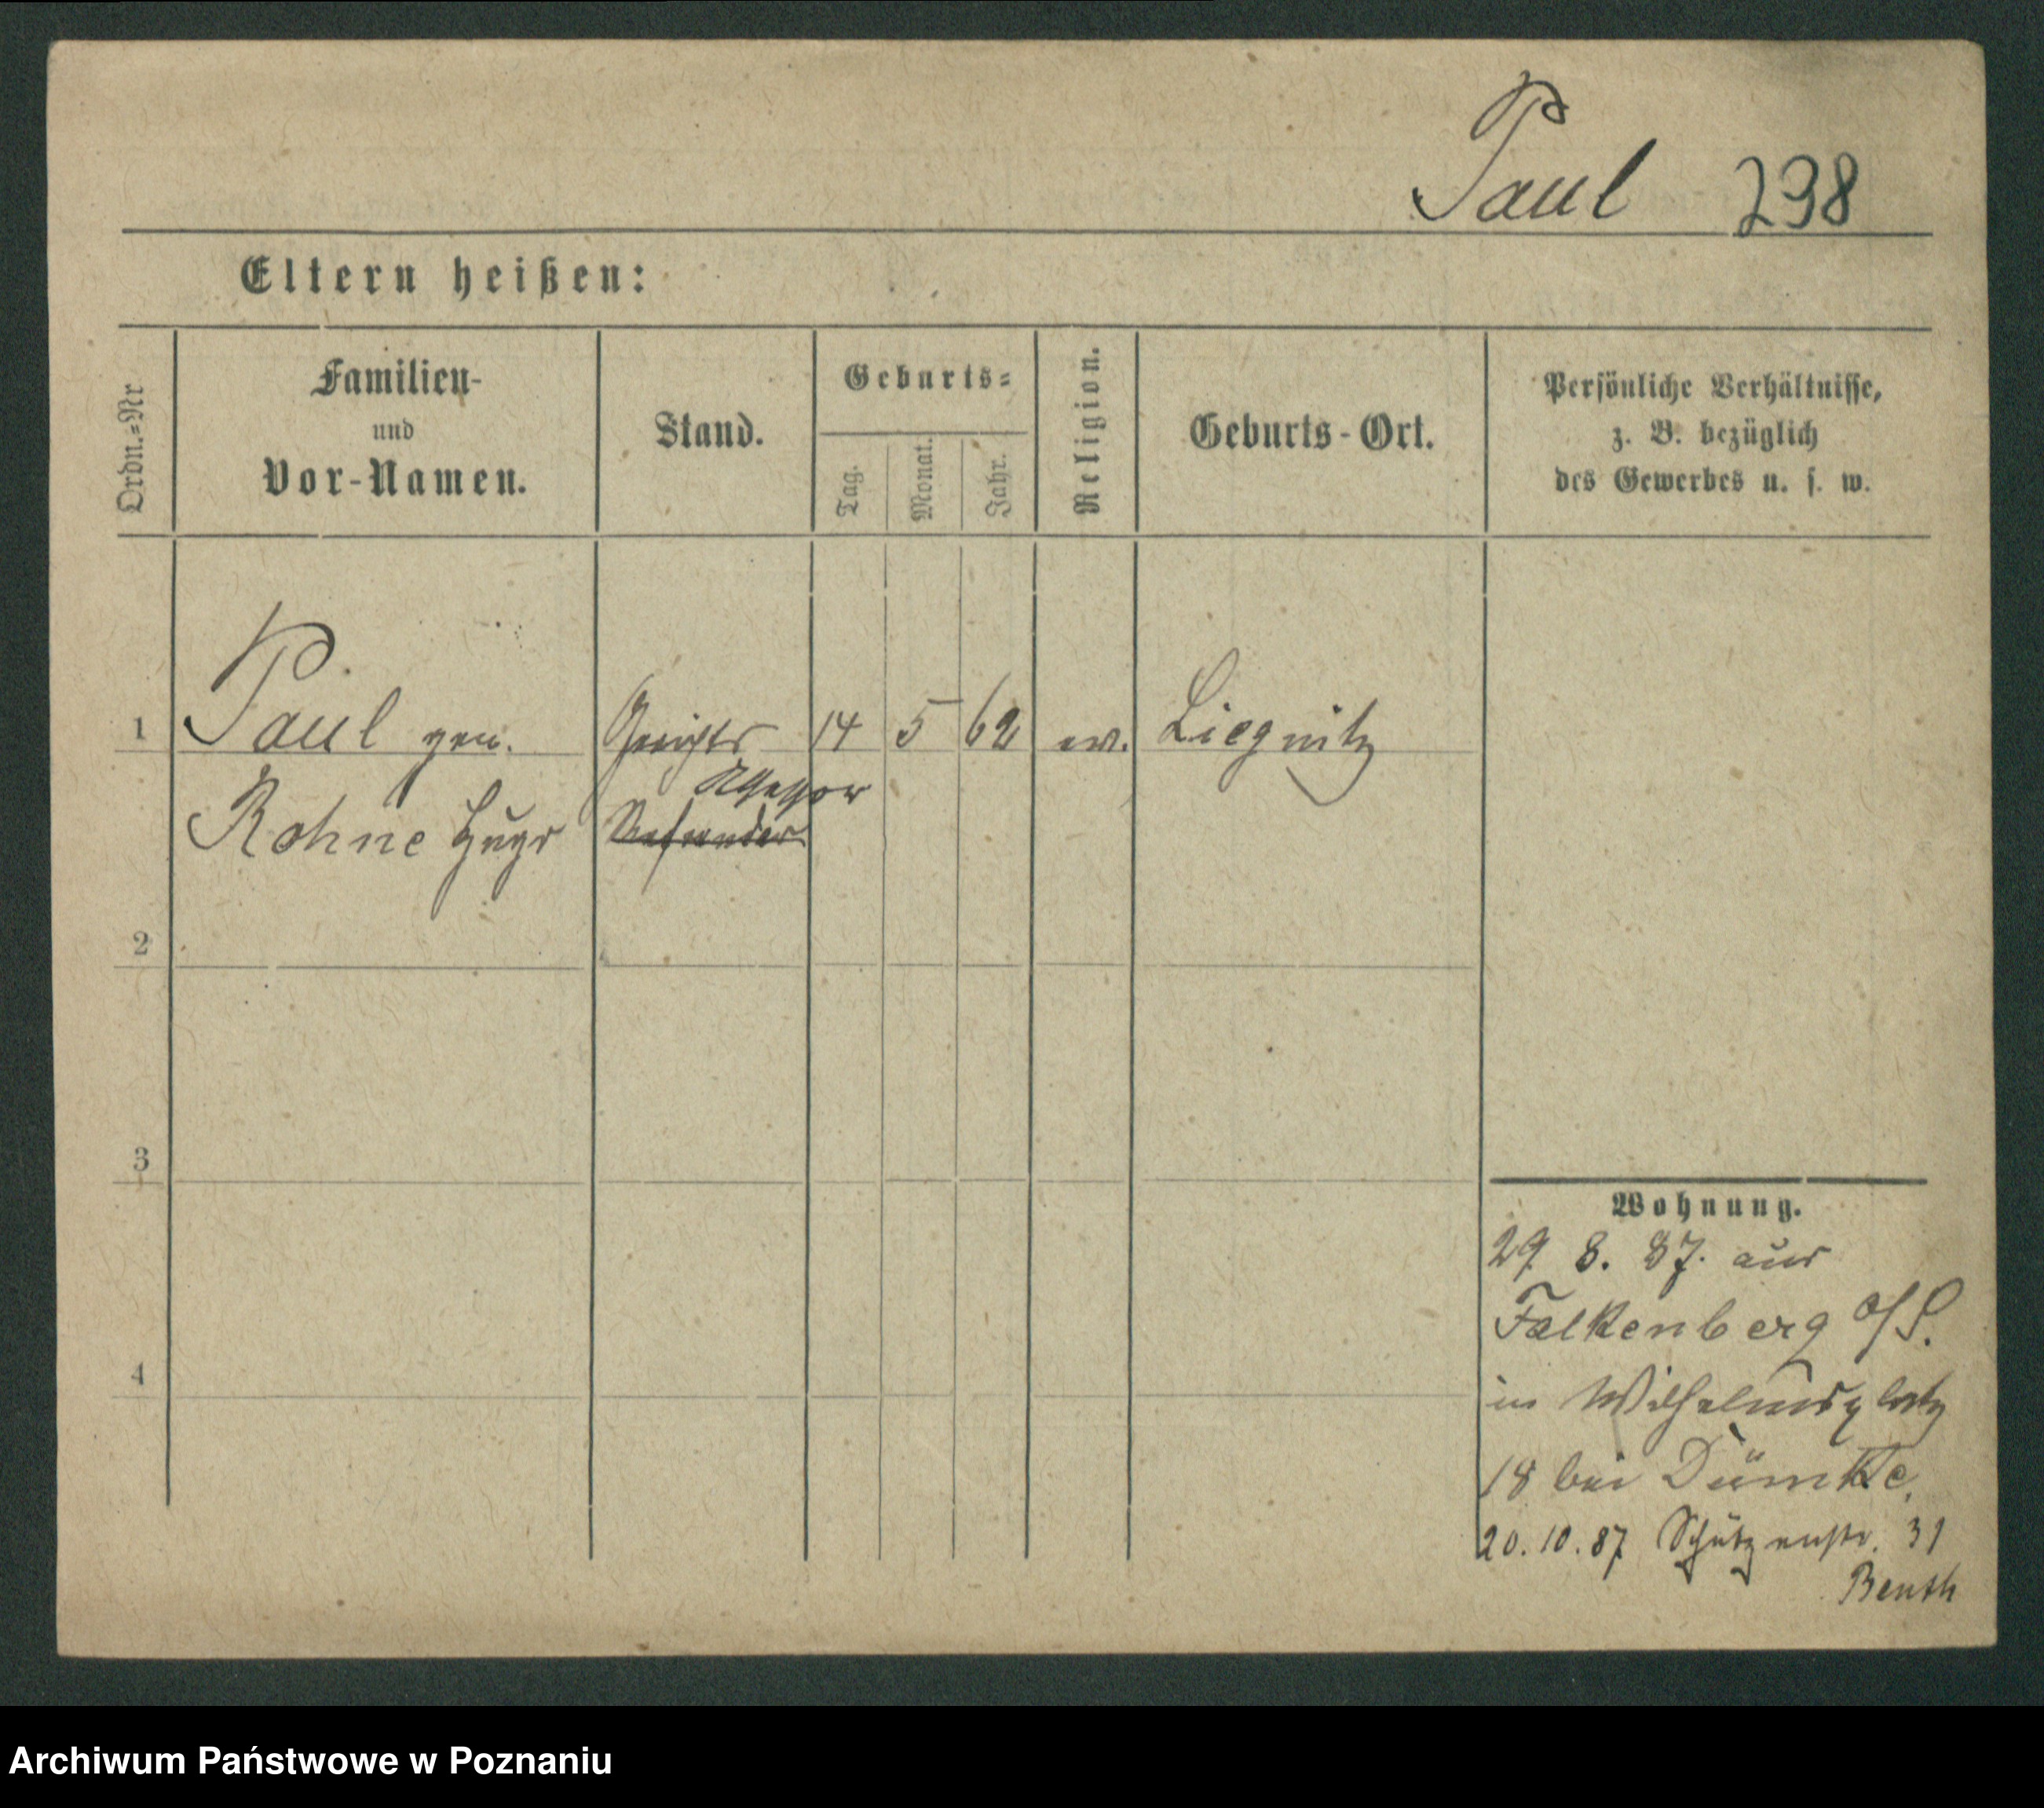 Paul 298
Eltern heißen:
Ordn.=Nr
Familien-
und
Vor-Namen.
Stand.
Geburts=
Tag.
Monat.
Jahr.
Religion.
Geburts-Ort.
Persönliche Verhältnisse,
z. B. bezüglich
des Gewerbes u. s. w.
1 Paul gen. Gerichts 14 5 62 ev. Liegnitz
Assessor
Rohne Hugo Referendar
2
3
4
Wohnung.
29. 8. 87. aus
Falkenberg O/S.
in Wilhelmsplatz
18 bei Dümke,
20. 10. 87 Schützenstr. 31
Benth
Archiwum Państwowe w Poznaniu